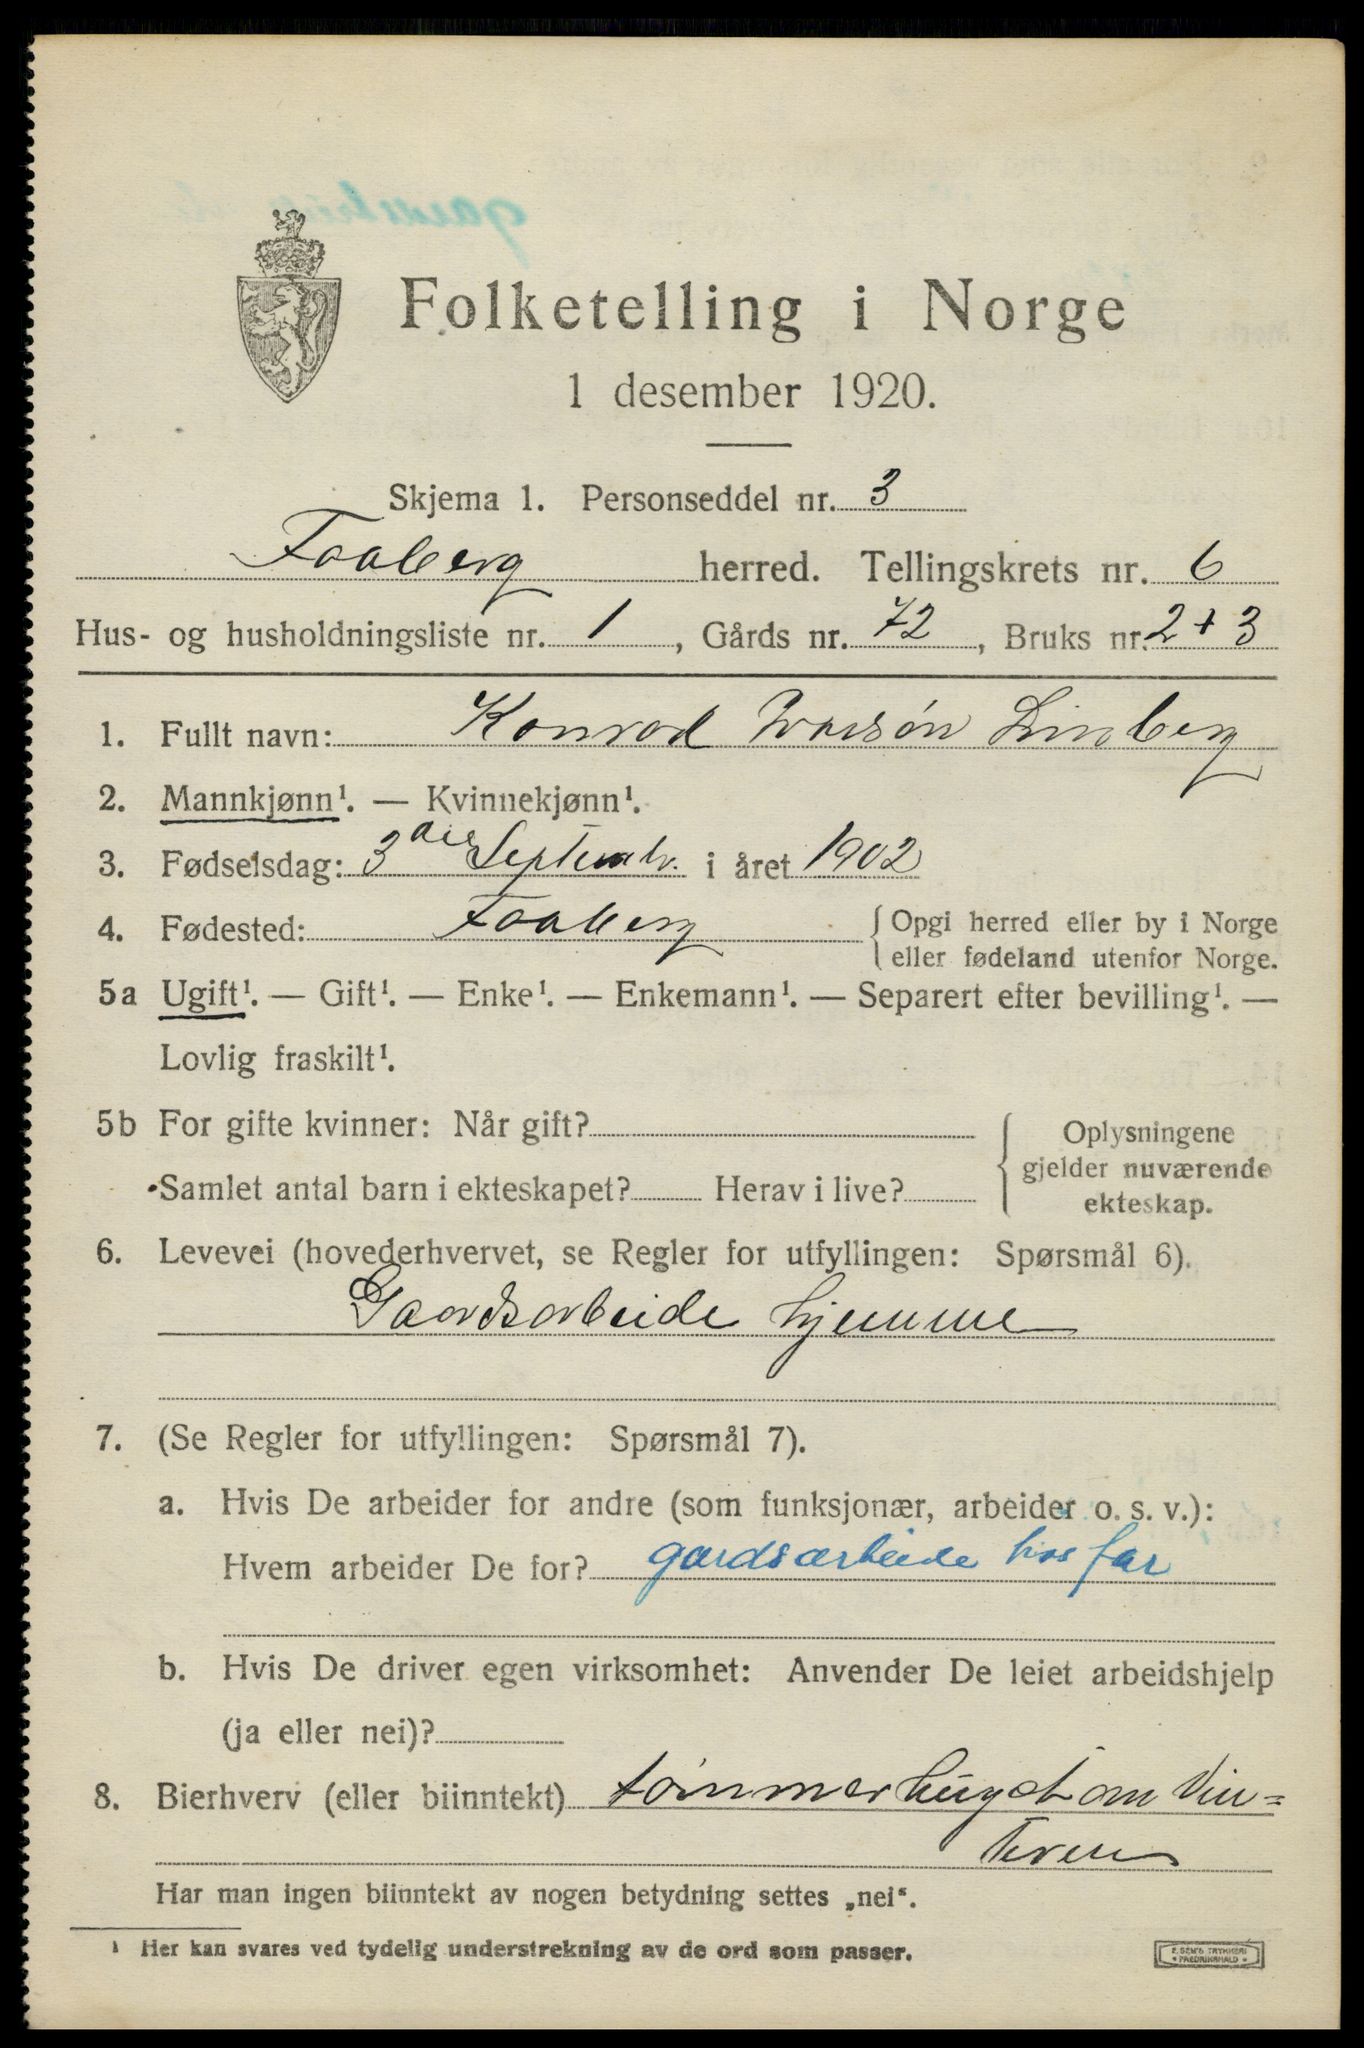 Folketelling i Norge
1 desember 1920.
Skjema 1. Personseddel nr. 3
Faaberg herred. Tellingskrets nr. 6
Hus- og husholdningsliste nr. 1, Gårds nr. 72, Bruks nr. 2 + 3
1. Fullt navn: Konrad Ivarsøn Linberg
2. Mannkjønn¹. — Kvinnekjønn¹.
3. Fødselsdag: 3die Septembr. i året 1902
4. Fødested: Faaberg { Opgi herred eller by i Norge
eller fødeland utenfor Norge.
5a Ugift¹. — Gift¹. — Enke¹. — Enkemann¹. — Separert efter bevilling¹. —
Lovlig fraskilt¹.
5b For gifte kvinner: Når gift?
Samlet antal barn i ekteskapet? Herav i live?
{ Oplysningene
gjelder nuværende
ekteskap.
6. Levevei (hovederhvervet, se Regler for utfyllingen: Spørsmål 6).
Gaardsarbeide hjemme
7. (Se Regler for utfyllingen: Spørsmål 7).
a. Hvis De arbeider for andre (som funksjonær, arbeider o. s. v.):
Hvem arbeider De for? gardsarbeide hos far
b. Hvis De driver egen virksomhet: Anvender De leiet arbeidshjelp
(ja eller nei)?
8. Bierhverv (eller biinntekt) tømmerhugst om Vin=
teren
Har man ingen biinntekt av nogen betydning settes „nei".
¹ Her kan svares ved tydelig understrekning av de ord som passer.
E. SEM'S TRYKKERI
FREDRIKSHALD